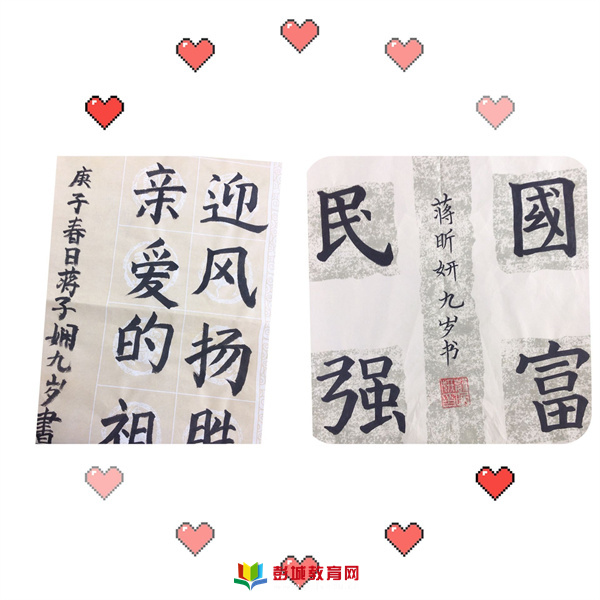 迎风扬胜
亲爱的祖
庚子春日蒋子娴九岁書
國富
民强
蒋昕妍九岁书
彭城教育网